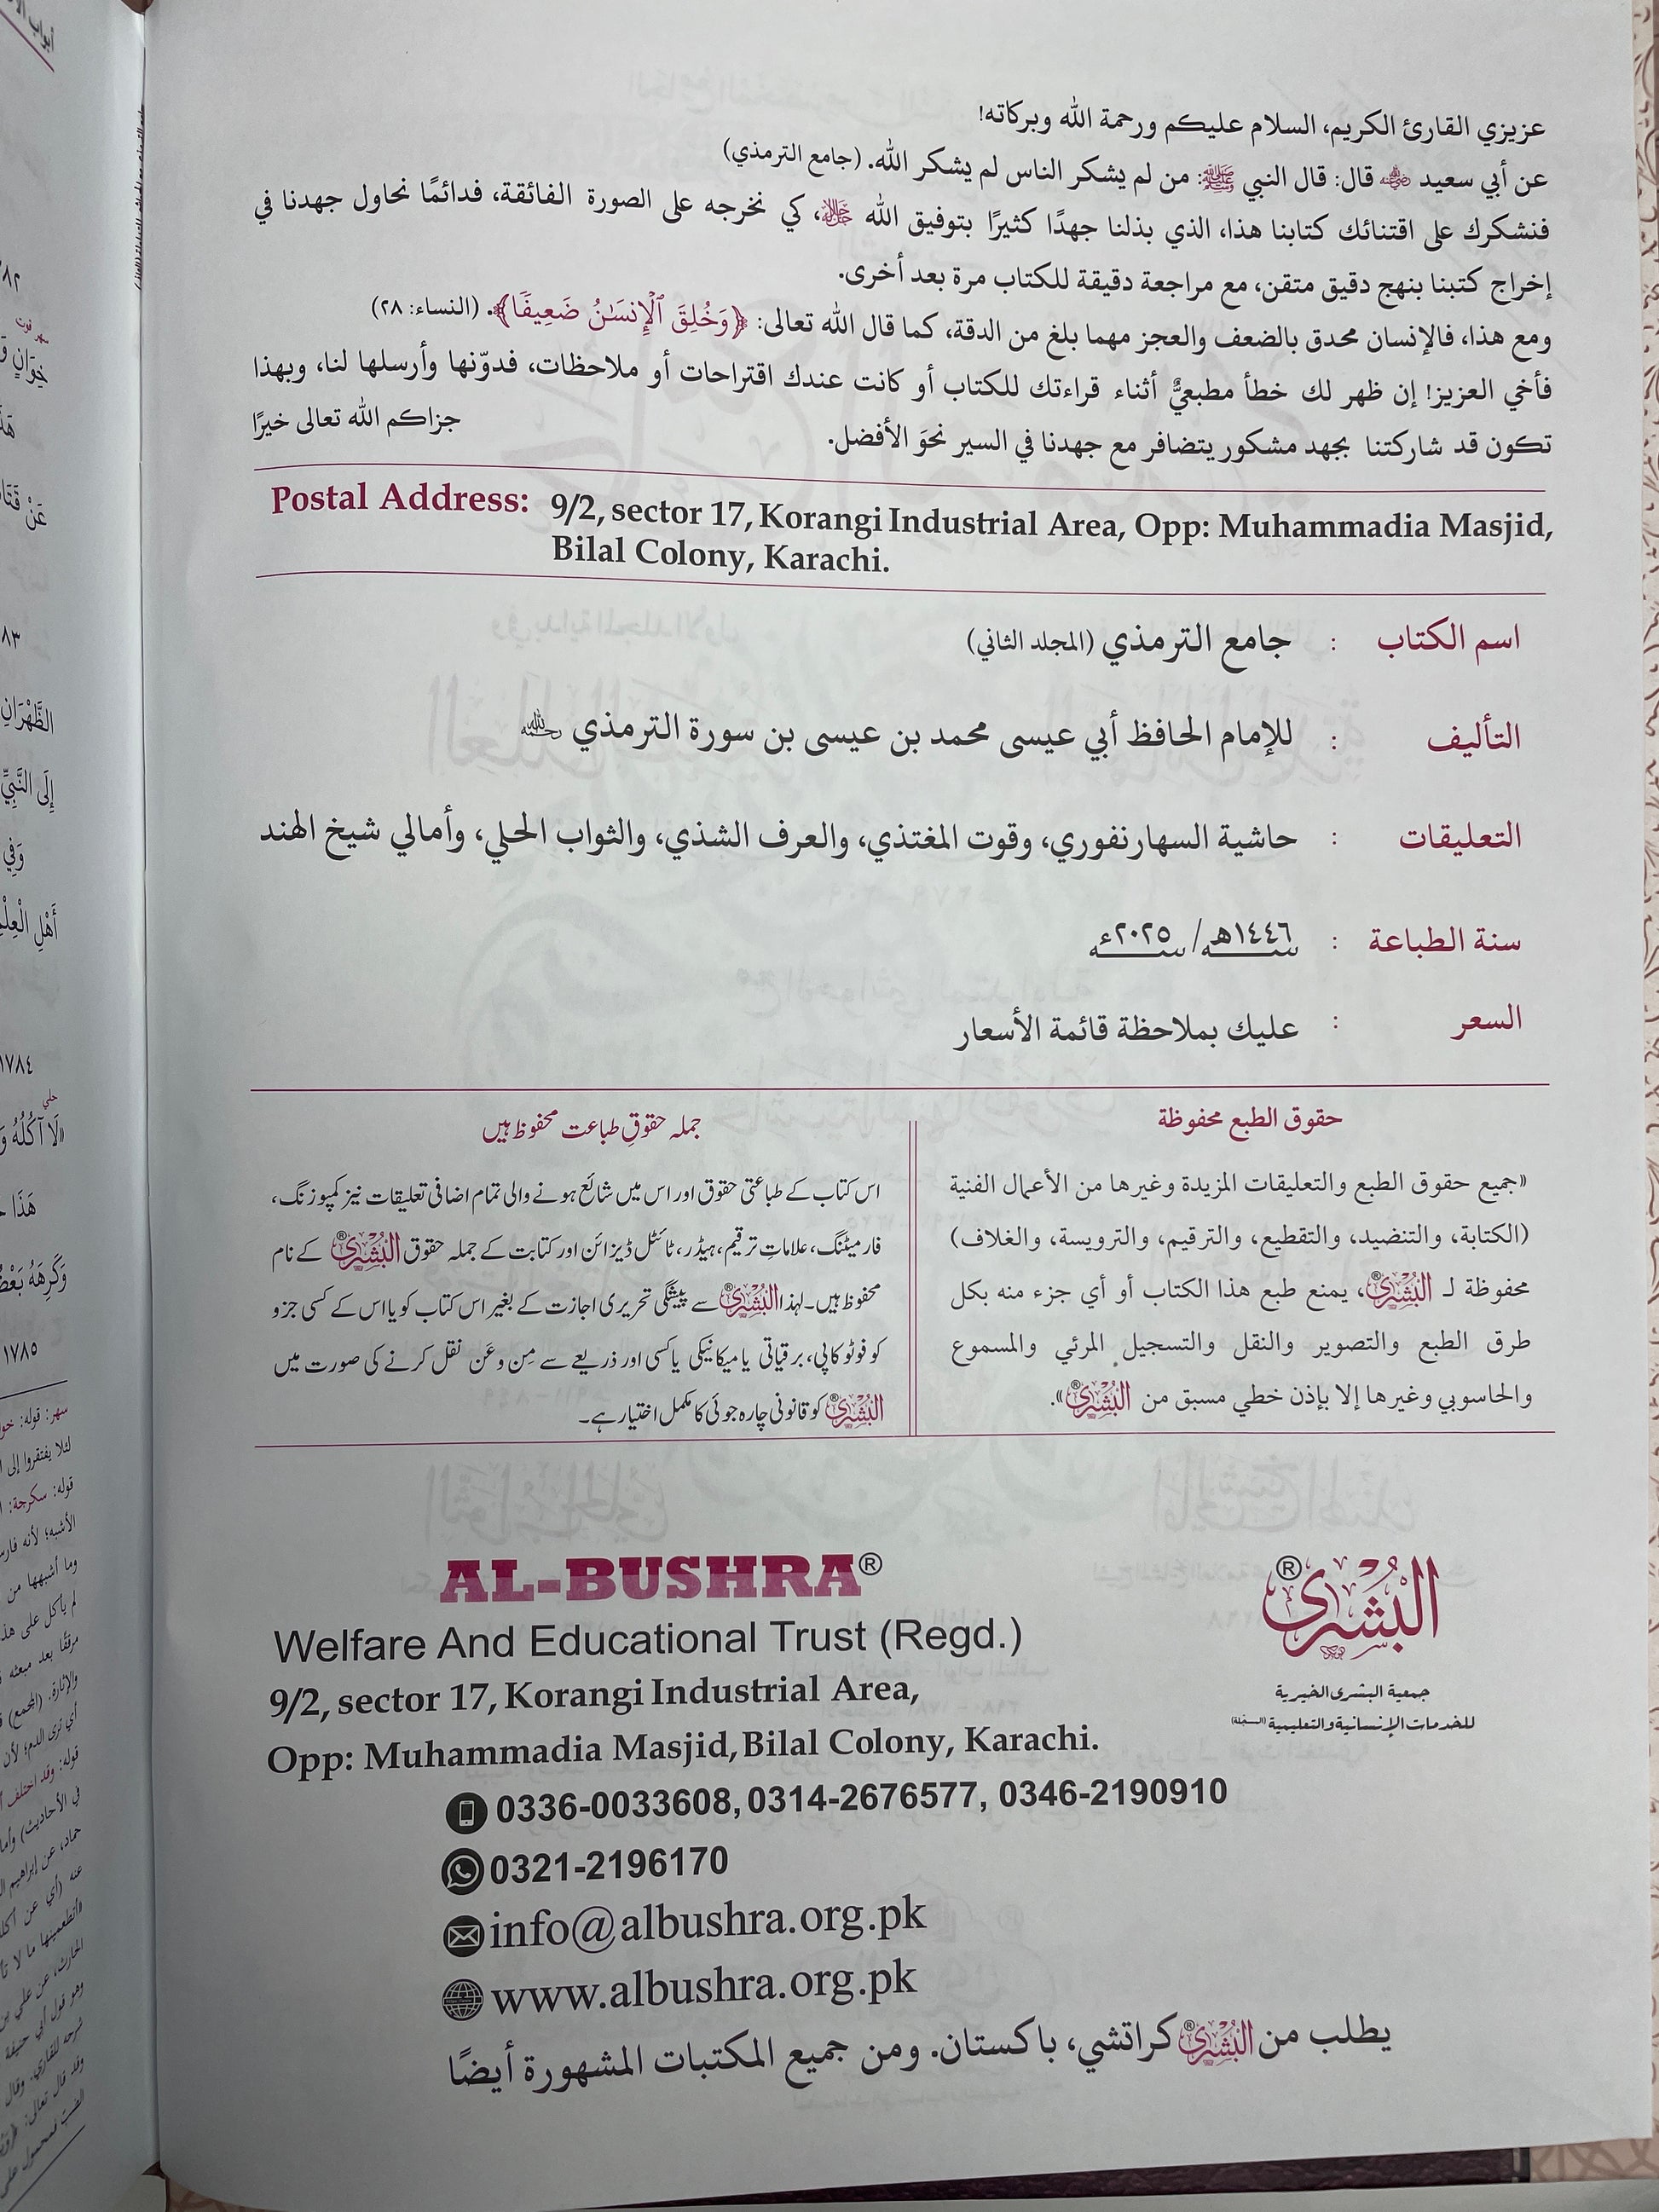 عزيزي القارئ الكريم، السلام عليكم ورحمة الله وبركاته!
عن أبي سعيد رضي الله عنه قال: قال النبي ﷺ: من لم يشكر الناس لم يشكر الله. (جامع الترمذي)
فنشكرك على اقتنائك كتابنا هذا، الذي بذلنا جهدًا كثيرًا بتوفيق الله ﷻ، كي نخرجه على الصورة الفائقة، فدائمًا نحاول جهدنا في
إخراج كتبنا بنهج دقيق متقن، مع مراجعة دقيقة للكتاب مرة بعد أخرى.
ومع هذا، فالإنسان محدق بالضعف والعجز مهما بلغ من الدقة، كما قال الله تعالى: ﴿وَخُلِقَ ٱلْإِنسَـٰنُ ضَعِيفًا﴾. (النساء: ٢٨)
فأخي العزيز! إن ظهر لك خطأ مطبعيٌّ أثناء قراءتك للكتاب أو كانت عندك اقتراحات أو ملاحظات، فدوّنها وأرسلها لنا، وبهذا
تكون قد شاركتنا بجهد مشكور يتضافر مع جهدنا في السير نحوَ الأفضل. جزاكم الله تعالى خيرًا
Postal Address: 9/2, sector 17, Korangi Industrial Area, Opp: Muhammadia Masjid,
Bilal Colony, Karachi.
اسم الكتاب : جامع الترمذي (المجلد الثاني)
التأليف : للإمام الحافظ أبي عيسى محمد بن عيسى بن سورة الترمذي رحمه الله
التعليقات : حاشية السهارنفوري، وقوت المغتذي، والعرف الشذي، والثواب الحلي، وأمالي شيخ الهند
سنة الطباعة : ١٤٤٦هـ / ٢٠٢٥ء
السعر : عليك بملاحظة قائمة الأسعار
حقوق الطبع محفوظة
«جميع حقوق الطبع والتعليقات المزيدة وغيرها من الأعمال الفنية
(الكتابة، والتنضيد، والتقطيع، والترقيم، والترويسة، والغلاف)
محفوظة لـ البُشرى®، يمنع طبع هذا الكتاب أو أي جزء منه بكل
طرق الطبع والتصوير والنقل والتسجيل المرئي والمسموع
والحاسوبي وغيرها إلا بإذن خطي مسبق من البُشرى®».
جملہ حقوقِ طباعت محفوظ ہیں
اس کتاب کے طباعتی حقوق اور اس میں شائع ہونے والی تمام اضافی تعلیقات نیز کمپوزنگ،
فارمیٹنگ، علاماتِ ترقیم، ہیڈر، ٹائٹل ڈیزائن اور کتابت کے جملہ حقوق البُشریٰ® کے نام
محفوظ ہیں۔ لہذا البُشریٰ® سے پیشگی تحریری اجازت کے بغیر اس کتاب کو یا اس کے کسی جزو
کو فوٹو کاپی، برقیاتی یا میکانیکی یا کسی اور ذریعے سے مِن و عَن نقل کرنے کی صورت میں
البُشریٰ® کو قانونی چارہ جوئی کا مکمل اختیار ہے۔
AL-BUSHRA®
Welfare And Educational Trust (Regd.)
9/2, sector 17, Korangi Industrial Area,
Opp: Muhammadia Masjid, Bilal Colony, Karachi.
البُشرى®
جمعية البشرى الخيرية
للخدمات الإنسانية والتعليمية (المسجّلة)
0336-0033608, 0314-2676577, 0346-2190910
0321-2196170
info@albushra.org.pk
www.albushra.org.pk
يطلب من البُشرى® كراتشي، باكستان. ومن جميع المكتبات المشهورة أيضًا